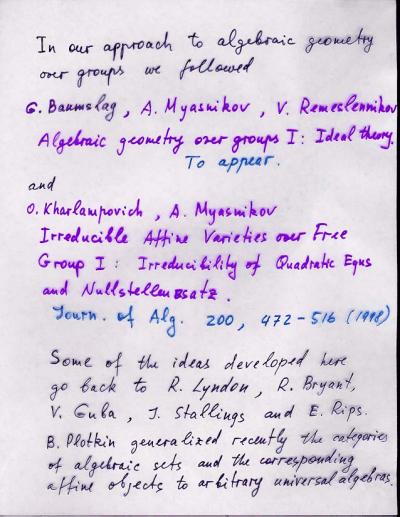 In our approach to algebraic geometry
over groups we followed
G. Baumslag, A. Myasnikov, V. Remeslennikov
Algebraic geometry over groups I: Ideal theory.
To appear.
and
O. Kharlampovich, A. Myasnikov
Irreducible Affine Varieties over Free
Group I: Irreducibility of Quadratic Equs
and Nullstellensatz.
Journ. of Alg. 200, 472-516 (1998)
Some of the ideas developed here
go back to R. Lyndon, R. Bryant,
V. Guba, J. Stallings and E. Rips.
B. Plotkin generalized recently the categories
of algebraic sets and the corresponding
affine objects to arbitrary universal algebras.